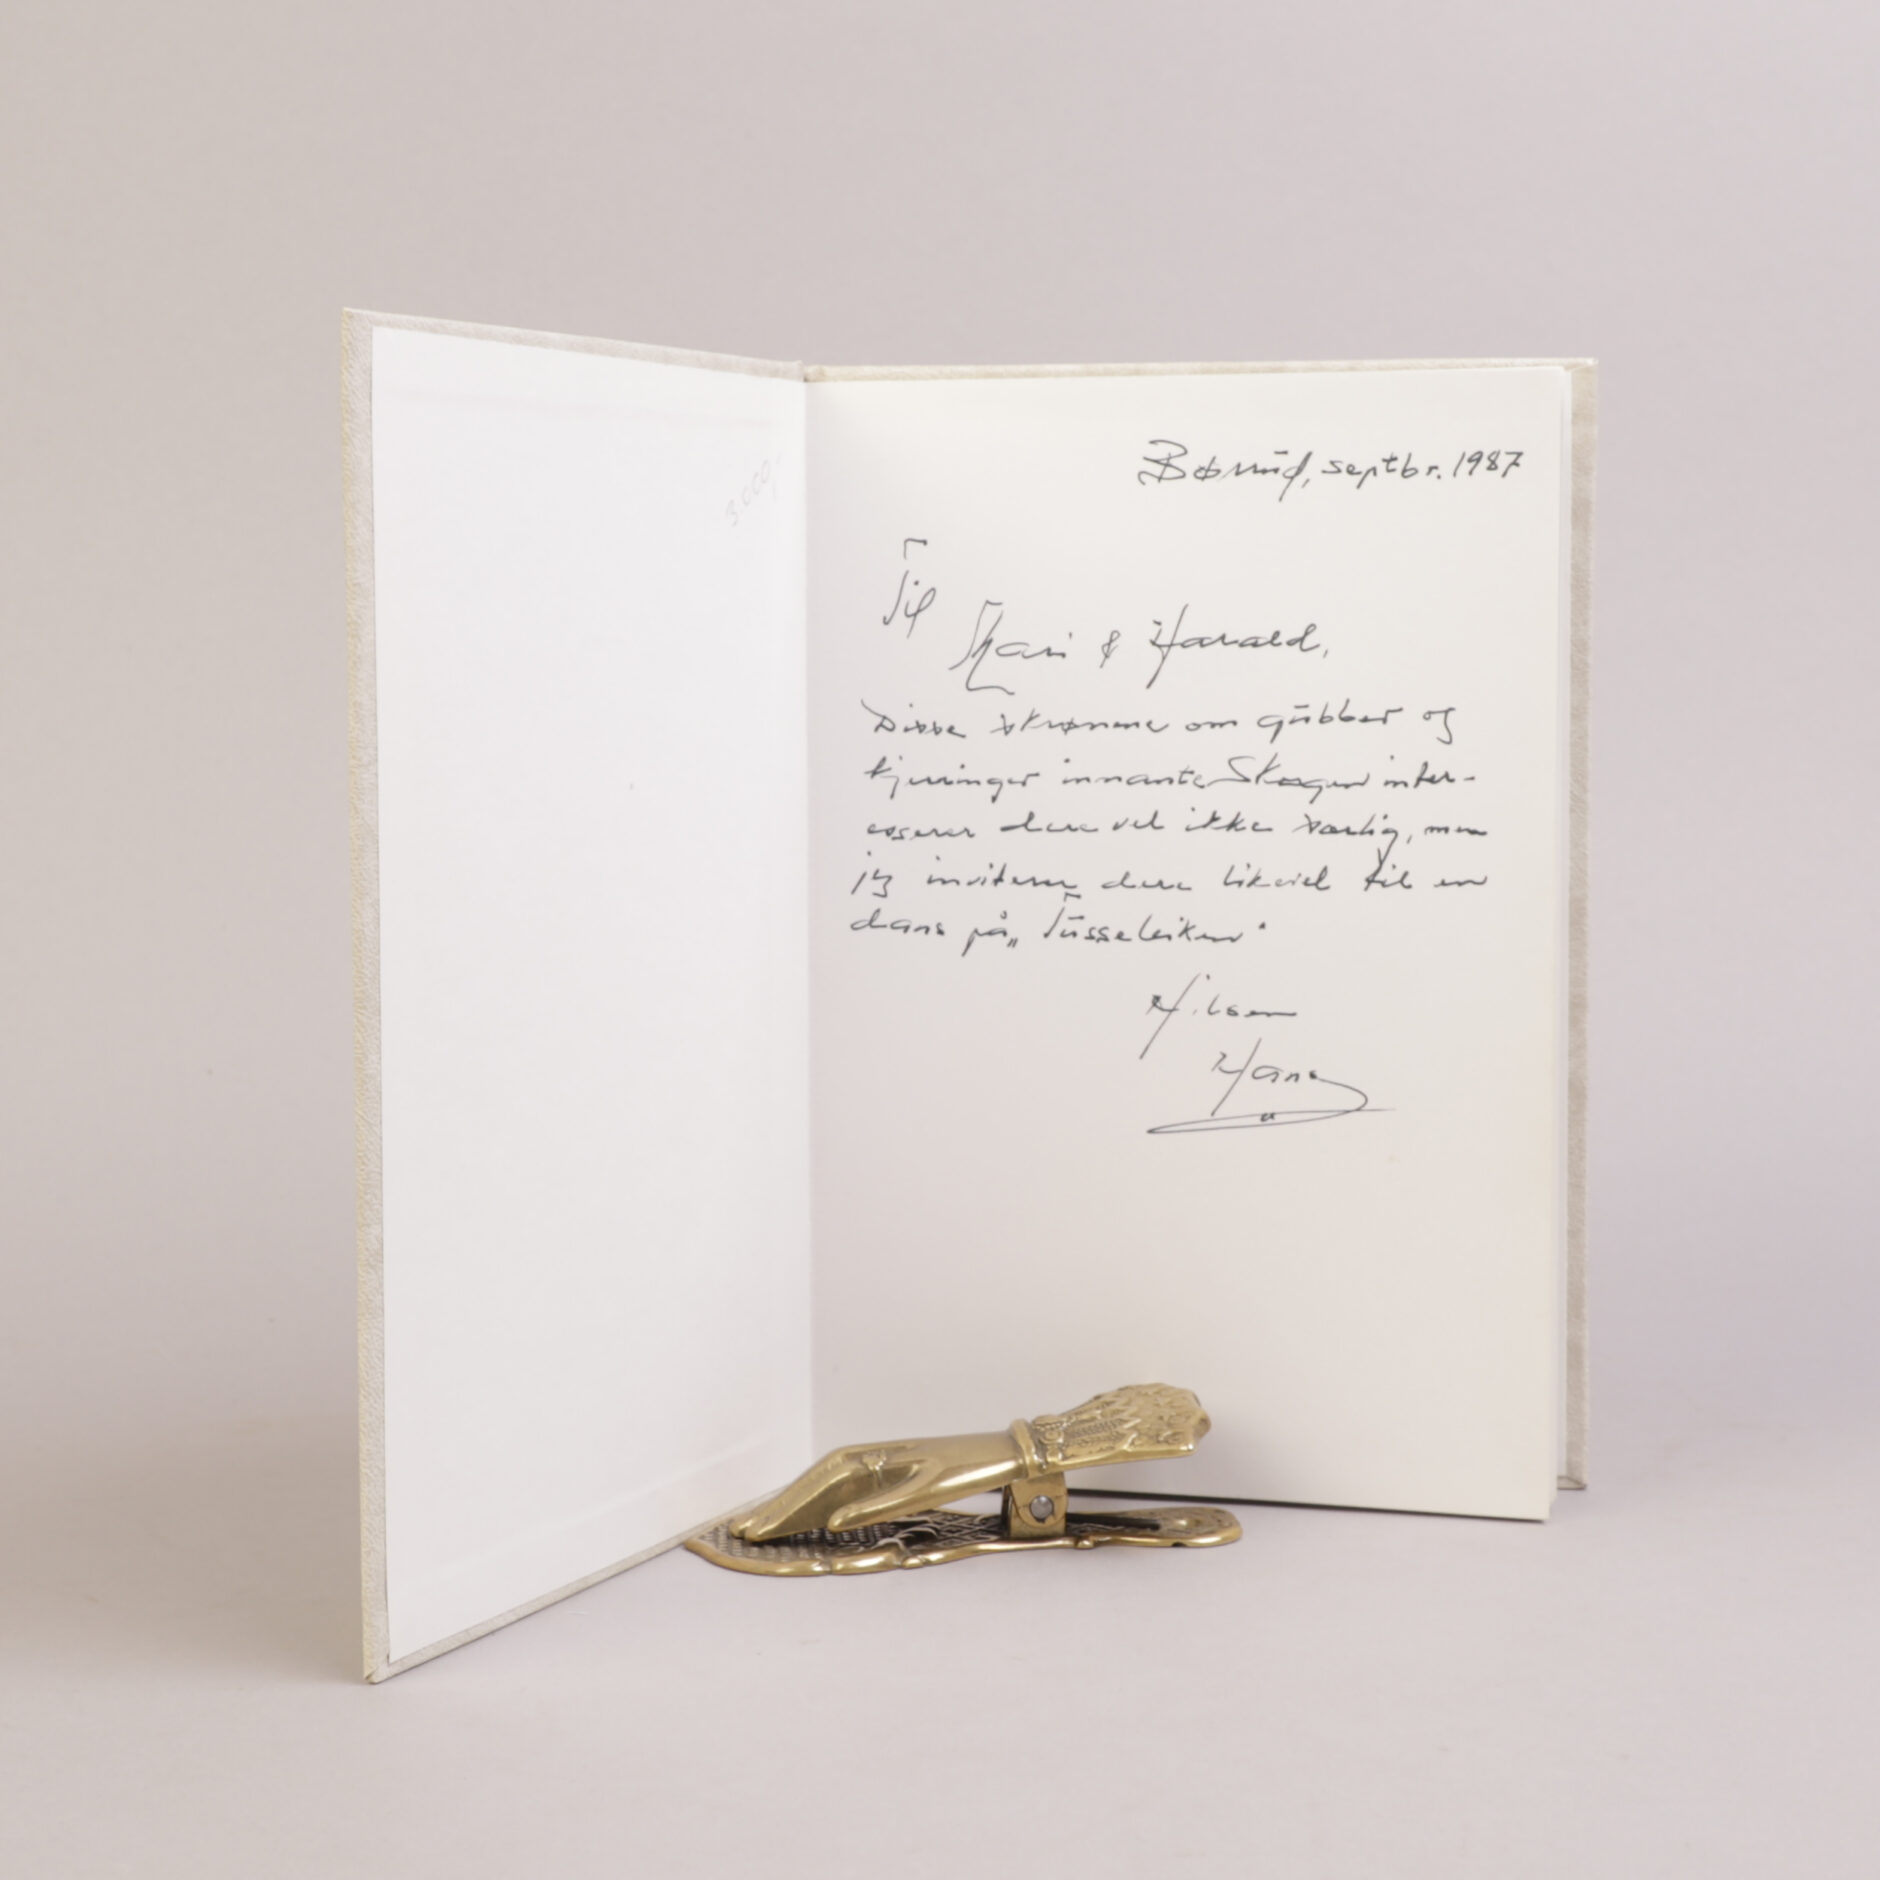 3.000,-
Bøsrud, septbr. 1987
Til
Kari & Harald,
Disse skrønene om gubber og
kjerringer innante Skogen inter-
esserer dere vel ikke særlig, men
jeg inviterer dere likevel til en
dans på „Tusseleiken"
Hilsen
Hans